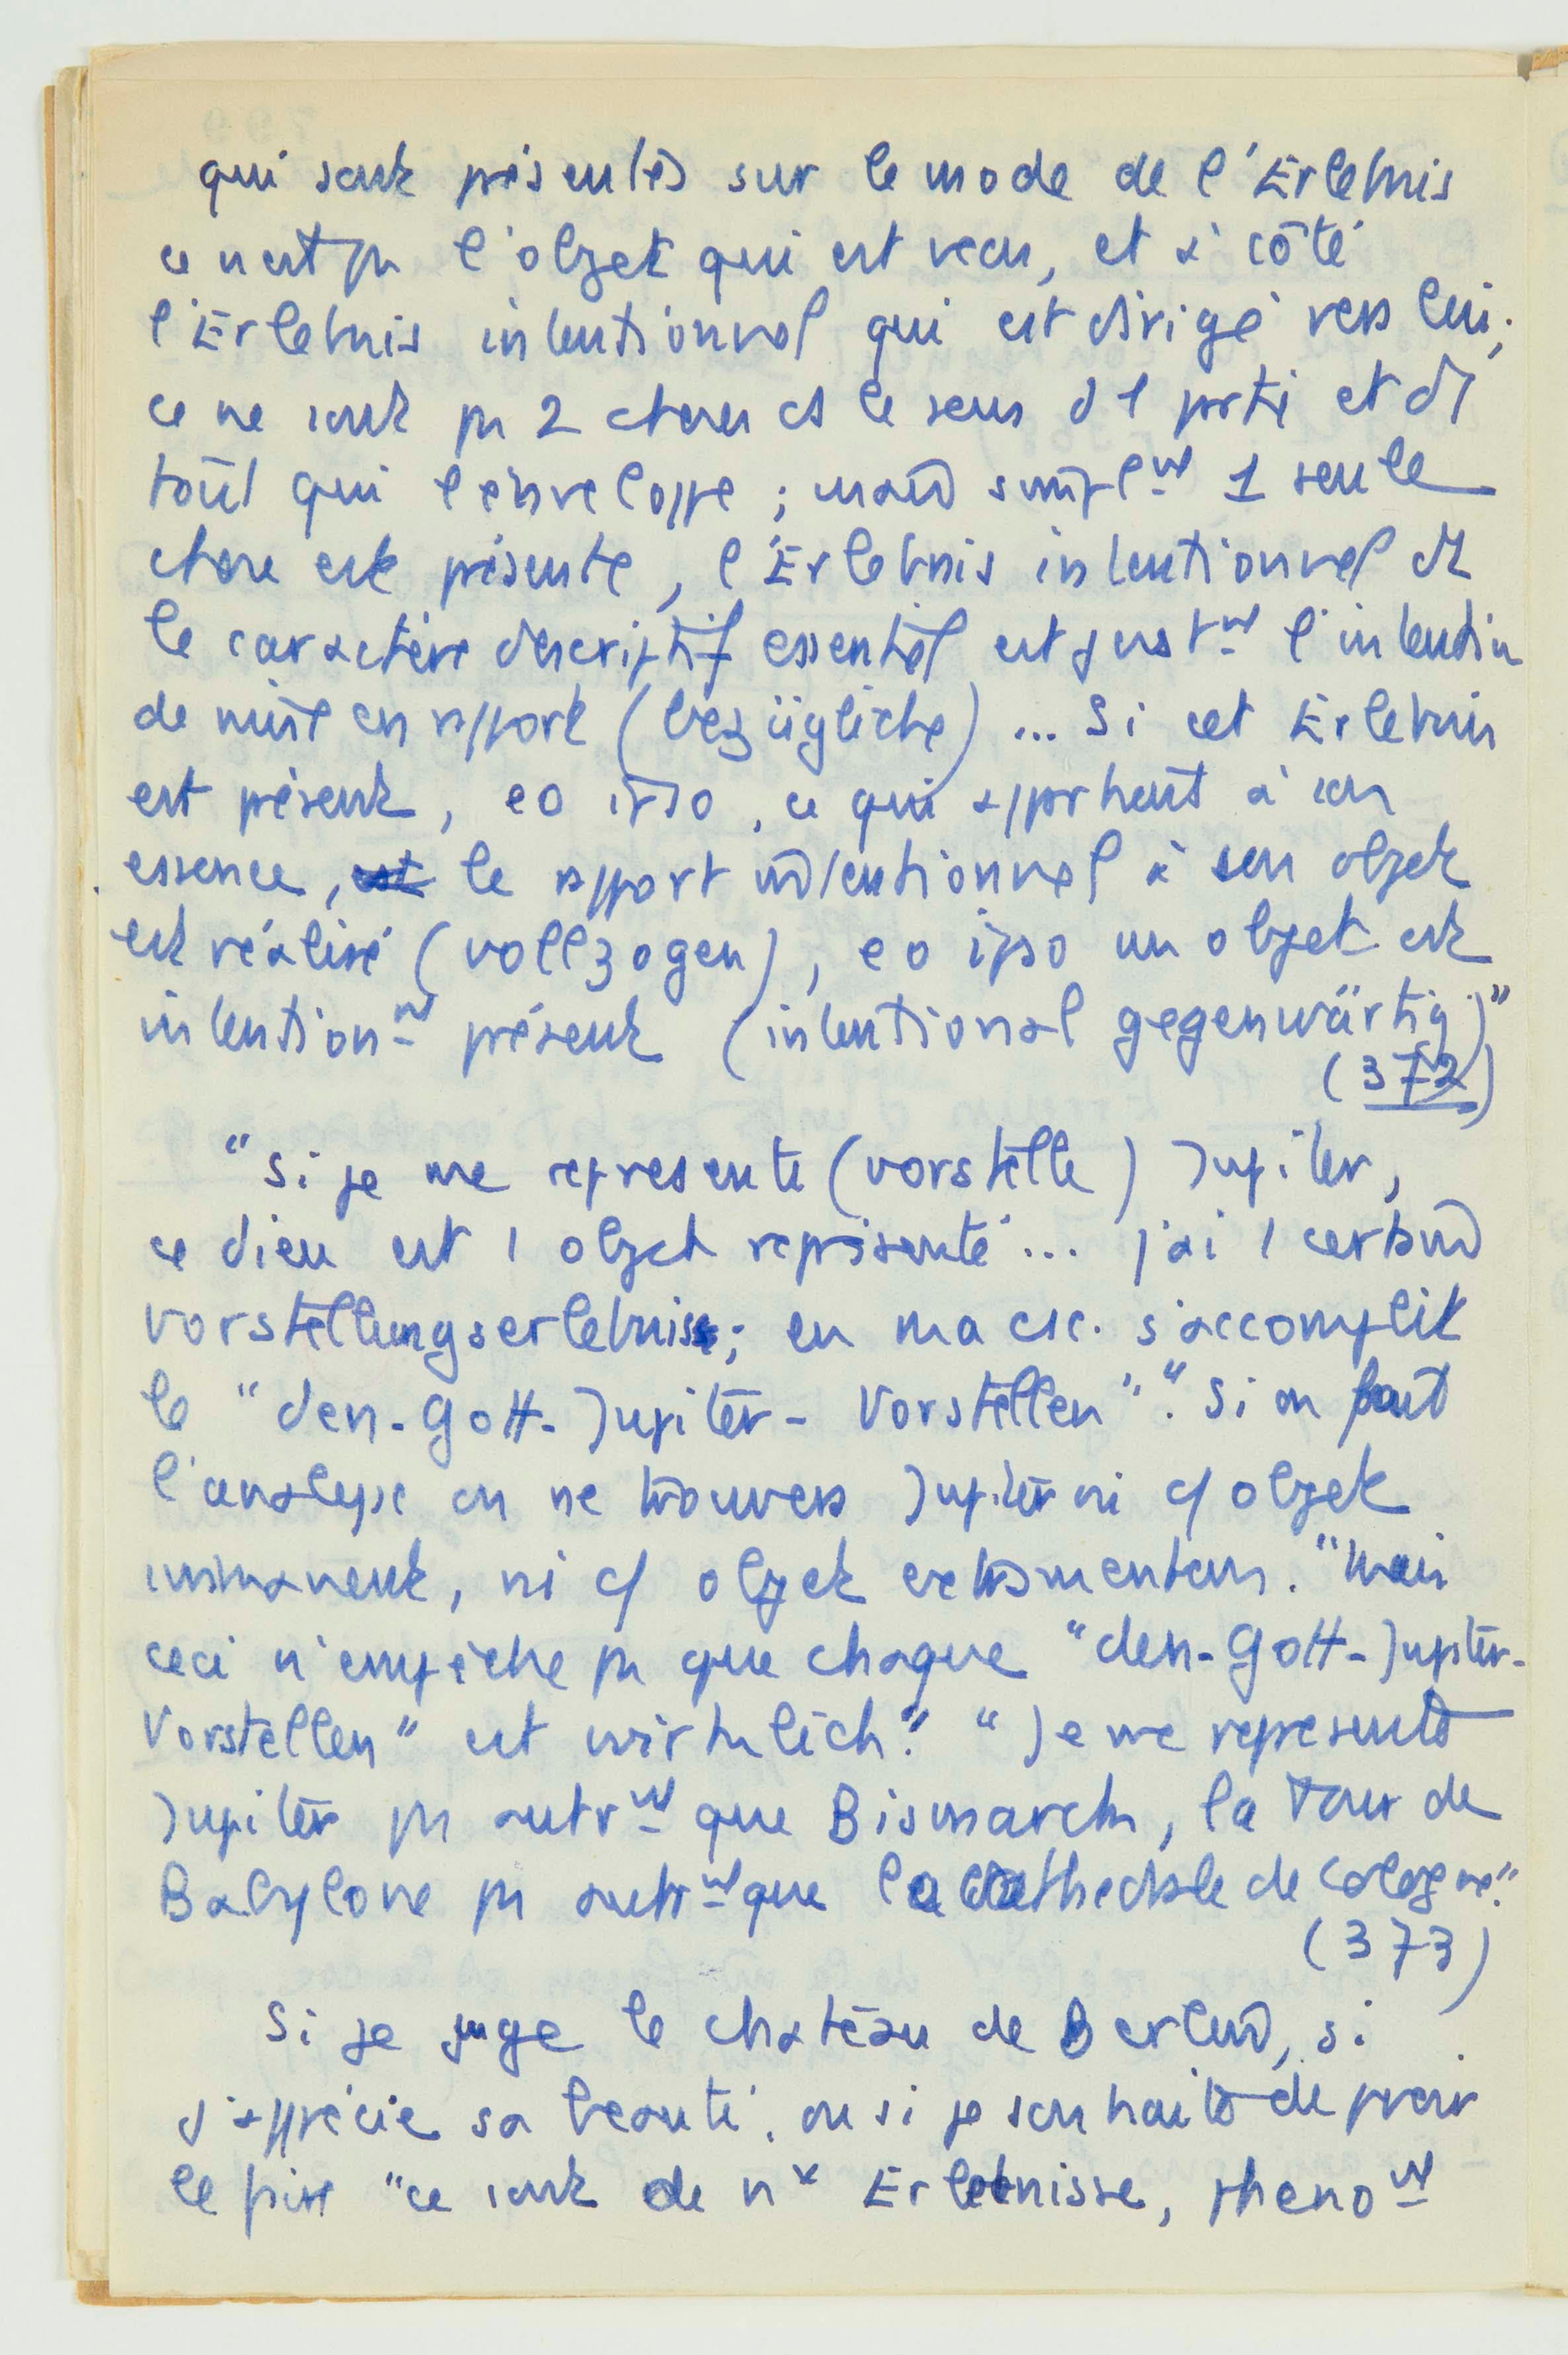 qui sont présentés sur le mode de l'Erlebnis
ce n'est pas l'objet qui est vécu, et à côté
l'Erlebnis intentionnel qui est dirigé vers lui;
ce ne sont pas 2 choses ds le sens d 1 partie et d1
tout qui l'enveloppe; mais simplnt 1 seule
chose est présente, l'Erlebnis intentionnel dt
le caractère descriptif essentiel est justnt l'intention
de mise en rapport (bezügliche) ... Si cet Erlebnis
est présent, eo ipso, ce qui appartient à son
essence, le rapport intentionnel à son objet
est réalisé (vollzogen), eo ipso un objet est
intentionnt présent (intentional gegenwärtig)"
(372)
"Si je me represente (vorstelle) Jupiter,
ce dieu est 1 objet représenté ... j'ai 1 certain
Vorstellungserlebnis; en ma csc. s'accomplit
le "den-Gott-Jupiter-Vorstellen"." Si on fait
l'analyse on ne trouvera Jupiter ni c/ objet
immanent, ni c/ objet extramental. "Mais
ceci n'empêche pas que chaque "den-Gott-Jupiter-
Vorstellen" est wirklich." "Je me represente
Jupiter pas autrnt que Bismarck, la Tour de
Babylone pas autrnt que la cathedrale de Cologne."
(373)
Si je juge le château de Berlin, si
j'apprécie sa beauté, ou si je souhaite de pvoir
le "ce sont de nx Erlebnisse, pheno nt